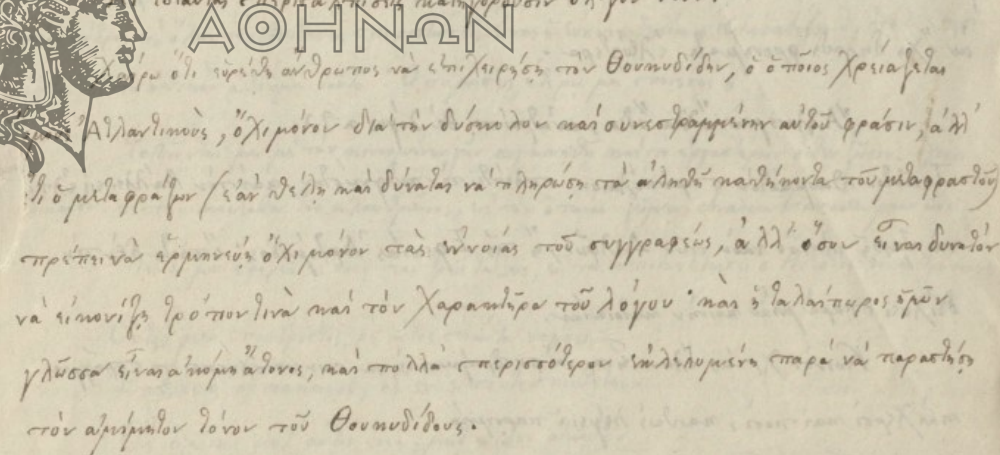 ΑΘΗΝΩΝ
Χαίρω ὅτι εὑρέθη ἄνθρωπος νὰ ἐπιχειρήσῃ τὸν Θουκυδίδην, ὁ ὁποῖος χρειάζεται
Ἀτλαντικοὺς, ὄχι μόνον διὰ τὴν δύσκολον καὶ συνεστραμμένην αὐτοῦ φράσιν, ἀλλ'
ὅτι ὁ μεταφράζων (ἐὰν θέλῃ καὶ δύναται νὰ πληρώσῃ τὰ ἀληθῆ καθήκοντα τοῦ μεταφραστοῦ)
πρέπει νὰ ἑρμηνεύῃ ὄχι μόνον τὰς ἐννοίας τοῦ συγγραφέως, ἀλλ' ὅσον εἶναι δυνατὸν
νὰ εἰκονίζῃ τρόπον τινὰ καὶ τὸν χαρακτῆρα τοῦ λόγου· καὶ ἡ ταλαίπωρος ἡμῶν
γλῶσσα εἶναι ἀκόμη ἄτονος, καὶ πολλὰ περισσότερον ἐκλελυμένη παρὰ νὰ παραστήσῃ
τὸν ἀμίμητον τόνον τοῦ Θουκυδίδους.